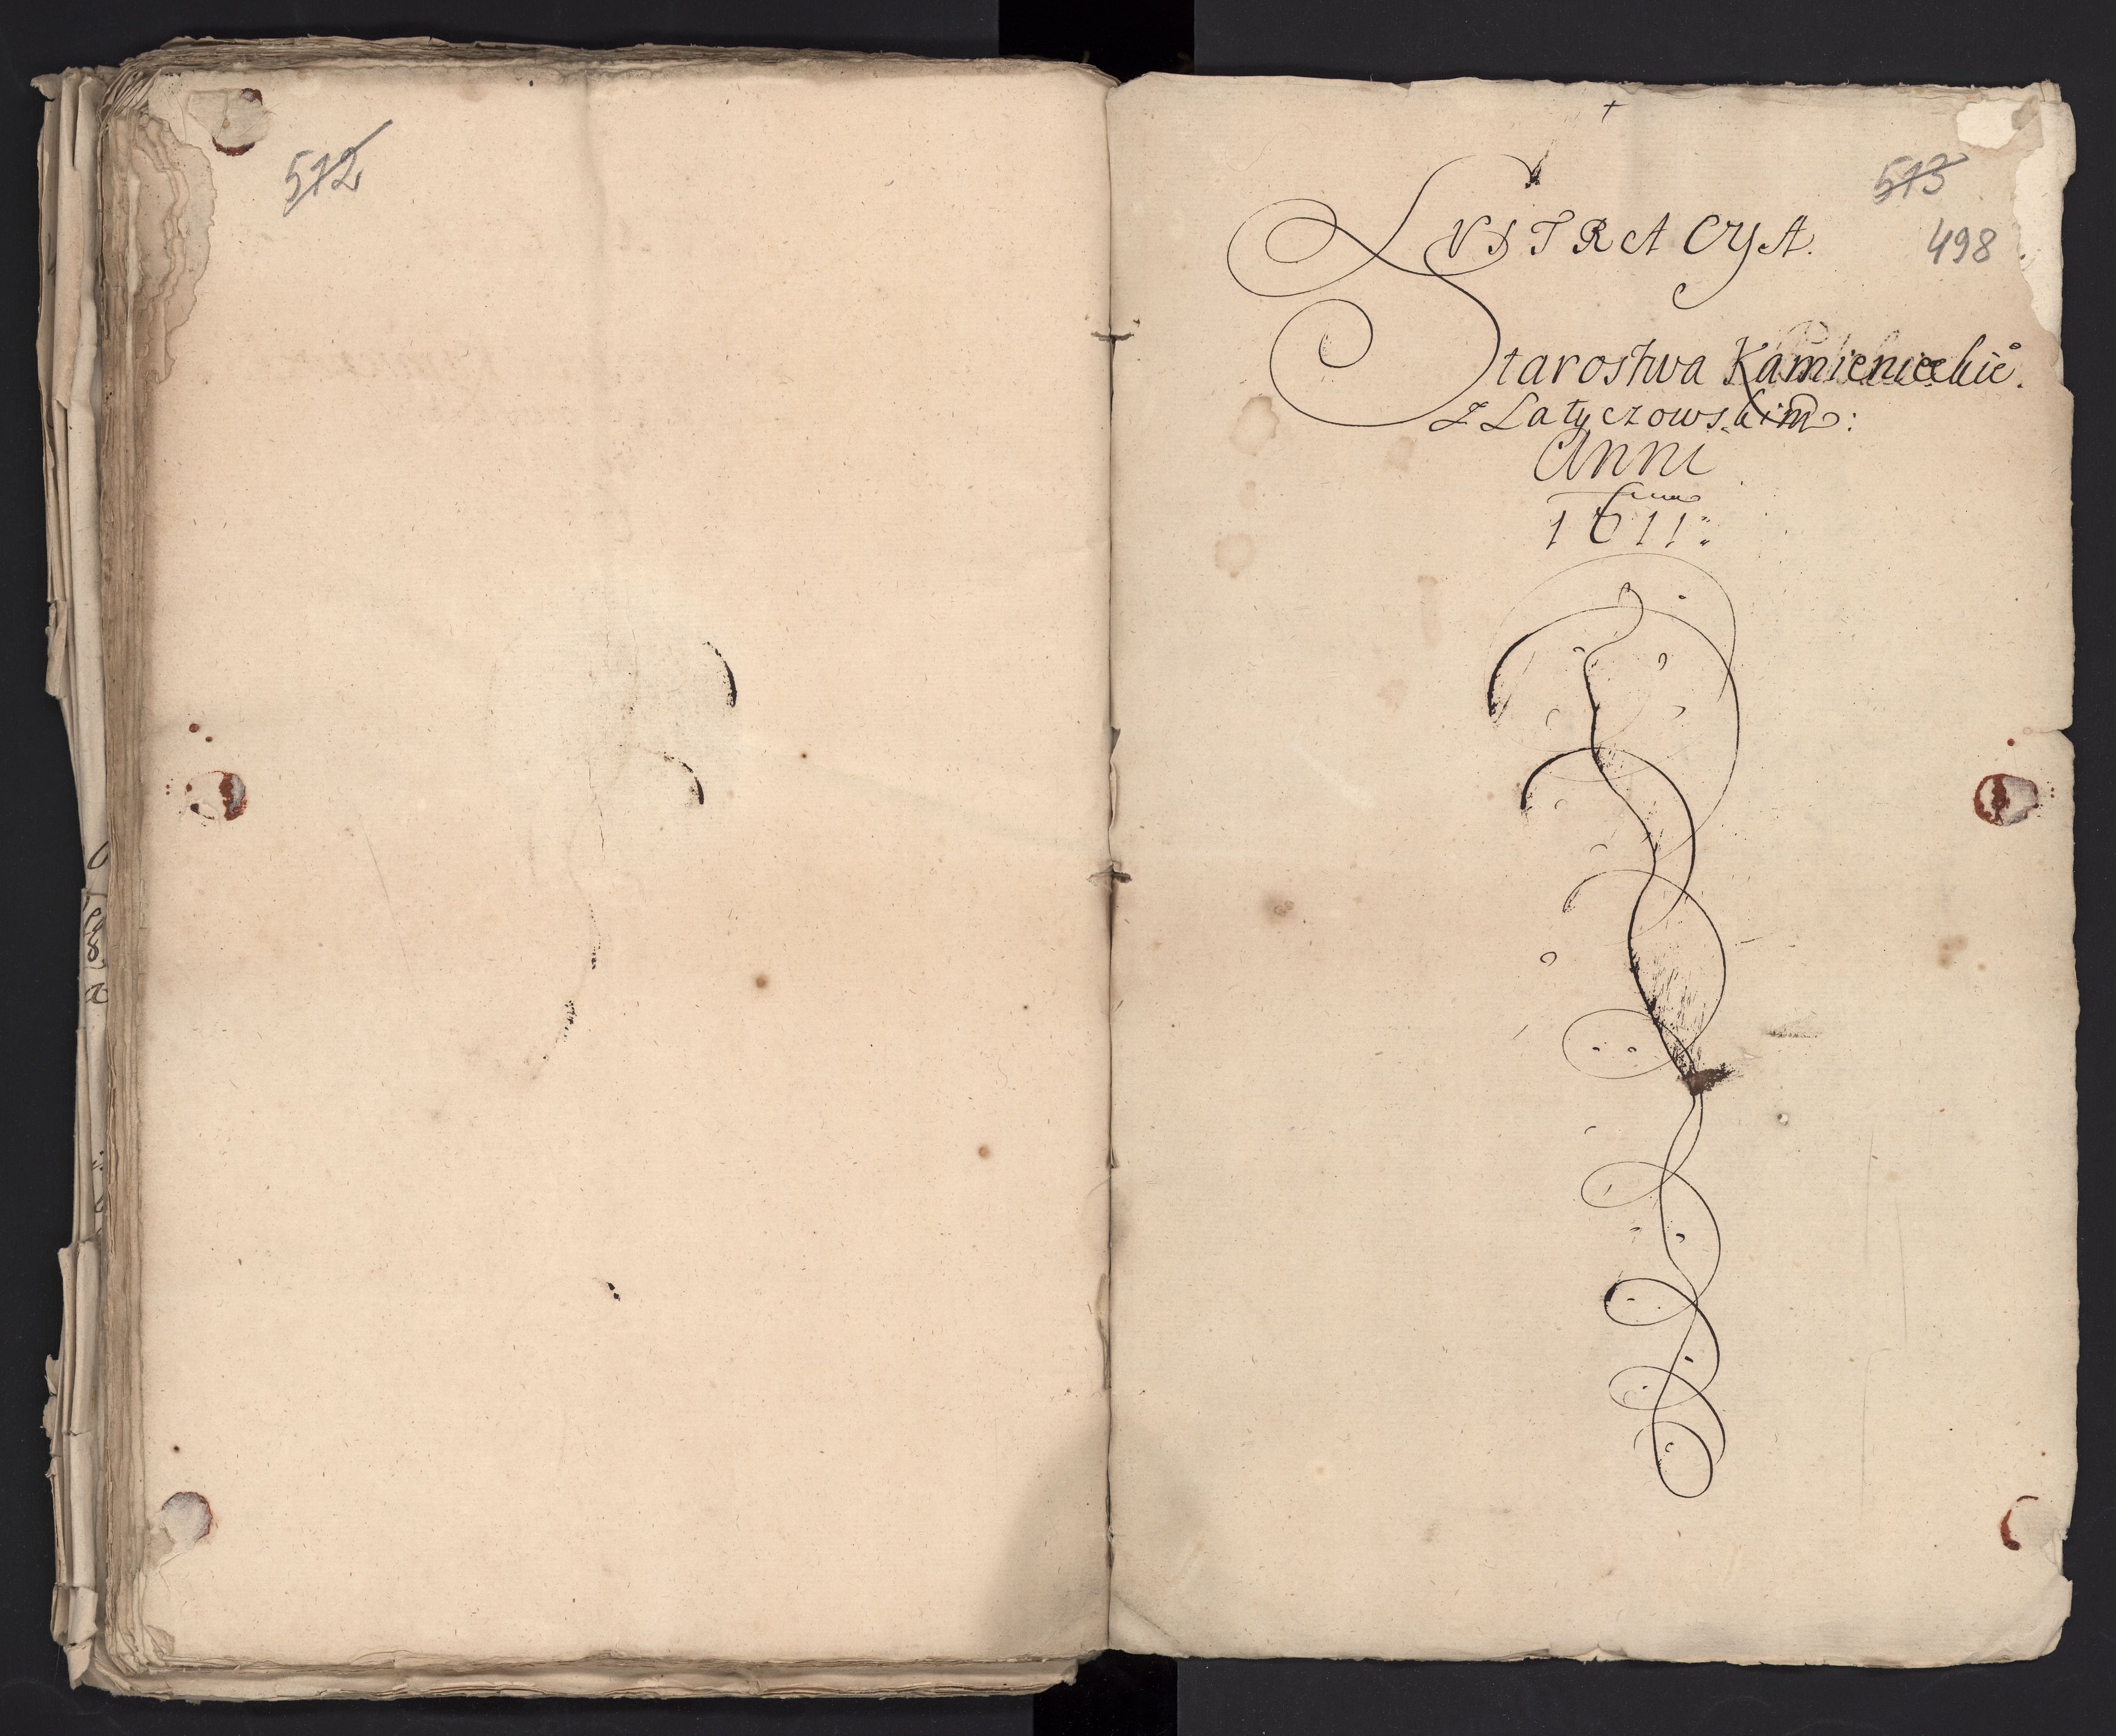 512
513
498
LVSTRACYA.
Starostwa Kamienieckie°.
z Latyczowskim:
Anni
1611: